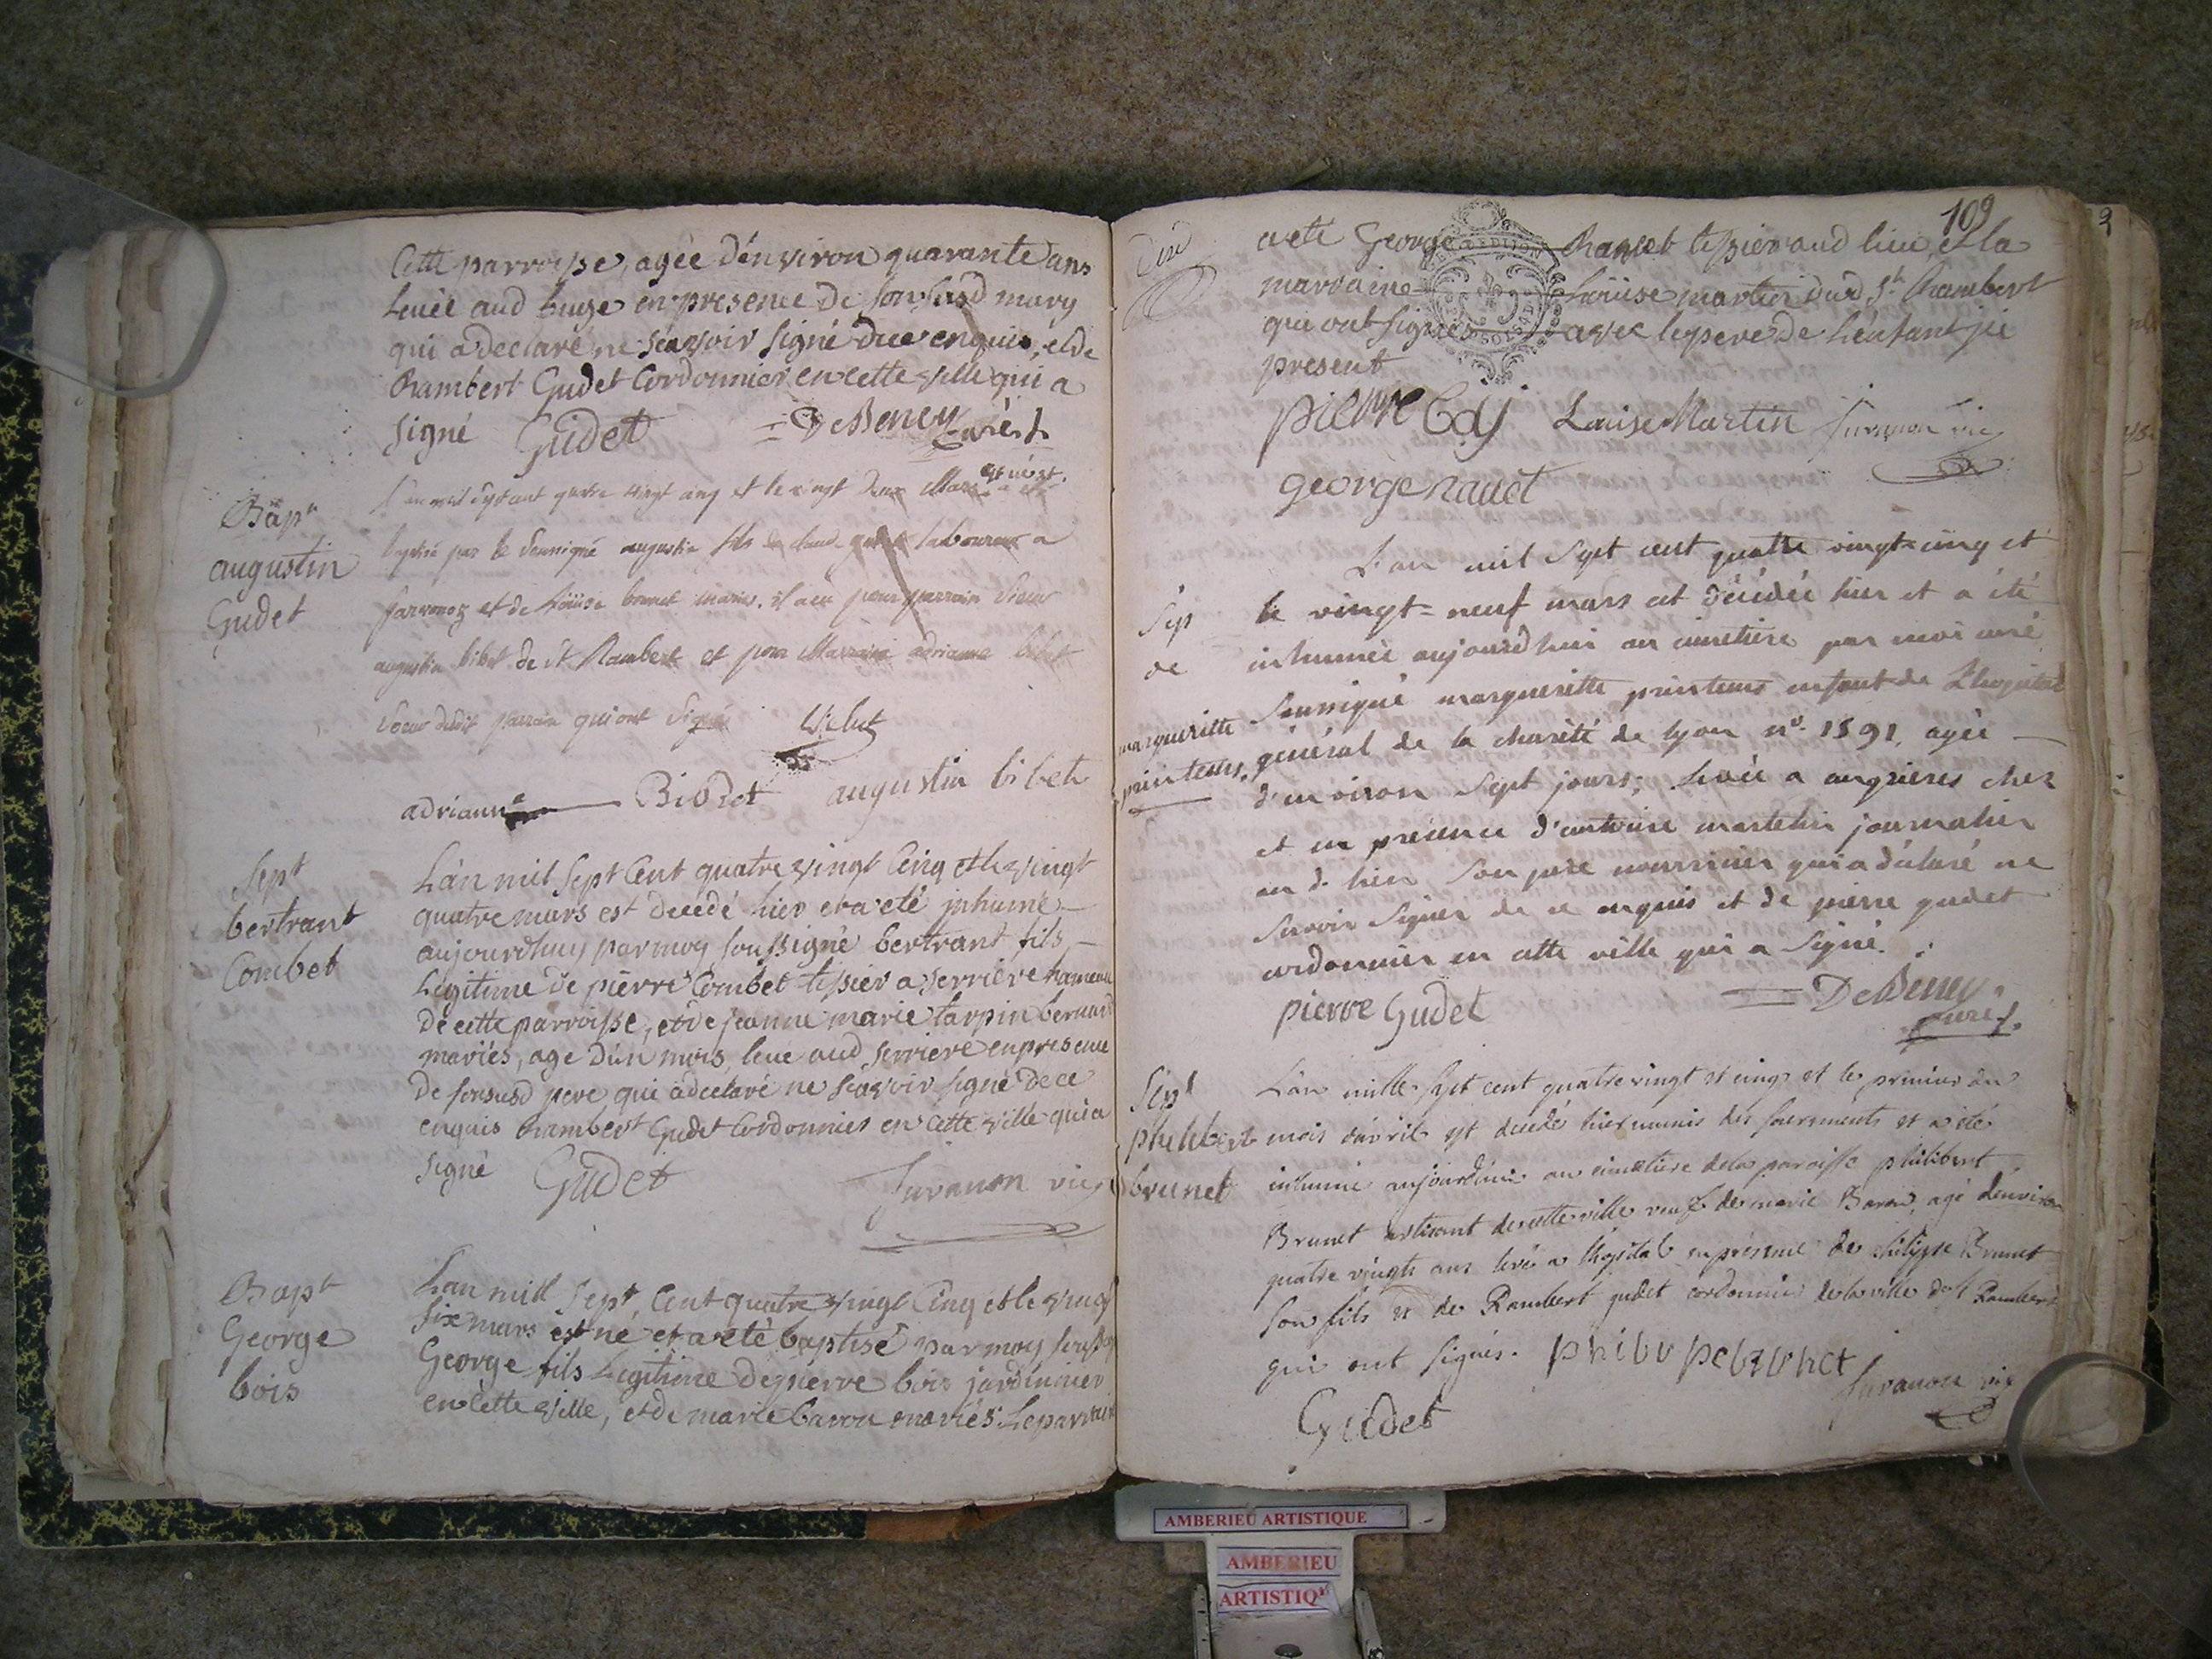 Cette parroisse, agée d'environ quarante ans
levée aud buge en presence de son susd mary
qui a declaré ne sçavoir signé de ce enquis, et de
Rambert Gudet Cordonnier en cette ville qui a
signé Gudet DeBeney curé
Bapt
augustin
Gudet
L'an mil sept cent quatre vingt cinq et le vingt deux Mars est né et a été
baptisé par le soussigné augustin fils de claude gudet laboureur a
et de Loüise bonnet mariés. il a eu pour parrain sieur
augustin bibet de st Rambert et pour Marraine adrianne bibet
soeur dudit parrain qui ont signé
adrianne augustin bibet
Sept
bertrant
Combet
L'an mil sept Cent quatre vingt Cinq et le vingt
quatre mars est decedé hier et a eté inhumé
aujourdhuy par moy soussigné bertrant fils
Legitime de pierre Combet tissier a Serriere hameau
de cette parroisse, et de jeanne marie tarpin bernard
mariés, age d'un mois, levé aud Serriere en presence
de son susd pere qui a declaré ne sçavoir signé de ce
enquis Rambert Gudet Cordonnier en cette ville qui a
signé Gudet Juvanon vic
Bapt
George
bois
L'an mill sept Cent quatre vingt Cinq et le vingt
six mars est né et a eté baptisé par moy soussigné
George fils Legitime de pierre bois jardinier
en cette ville, et de marie baron mariés Le parrain
109
a eté George tissier aud lieu et la
marraine Loüise martin dud St Rambert
qui ont signés avec le pere de L'enfant ici
present
pierre Louise Martin Juvanon vic
george
Sep
de
marguerite
printems
L'an mil sept cent quatre vingt-cinq et
le vingt-neuf mars est décédée hier et a été
inhumée aujourd'hui au cimetière par moi curé
soussigné marguerite printems enfant de L'hopital
général de la charité de lyon n° 1591, agée
d'environ sept jours; levée a angrieres chez
et en présence d'antoine martelin journalier
au d. lieu son pere nourricier qui a déclaré ne
savoir signer de ce enquis et de pierre gudet
cordonnier en cette ville qui a signé.
pierre Gudet DeBeney curé
Sept
philibert
brunet
L'an mille sept cent quatre vingt et cinq et le premier du
mois d'avril est decedé hier munis des sacrements et a été
inhumé aujourd'hui au cimetière de la paroisse philibert
Brunet artisant de cette ville veuf de marie Baron, agé d'environ
quatre vingts ans levé a l'hopital en présence de philippe Brunet
son fils et de Rambert gudet cordonnier de la ville de st Rambert
qui ont signés. philippe brunet
Juvanon vic
Gudet
AMBERIEU ARTISTIQUE
AMBERIEU
ARTISTIQ